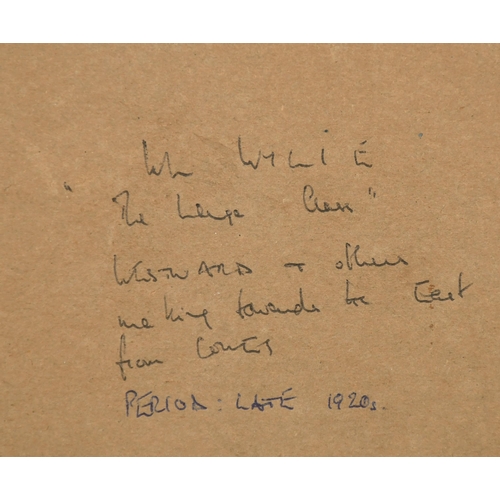 WL WYLIE
"The Large Class"
WESTWARD + others
making towards the East
from COWES
PERIOD: LATE 1920s.